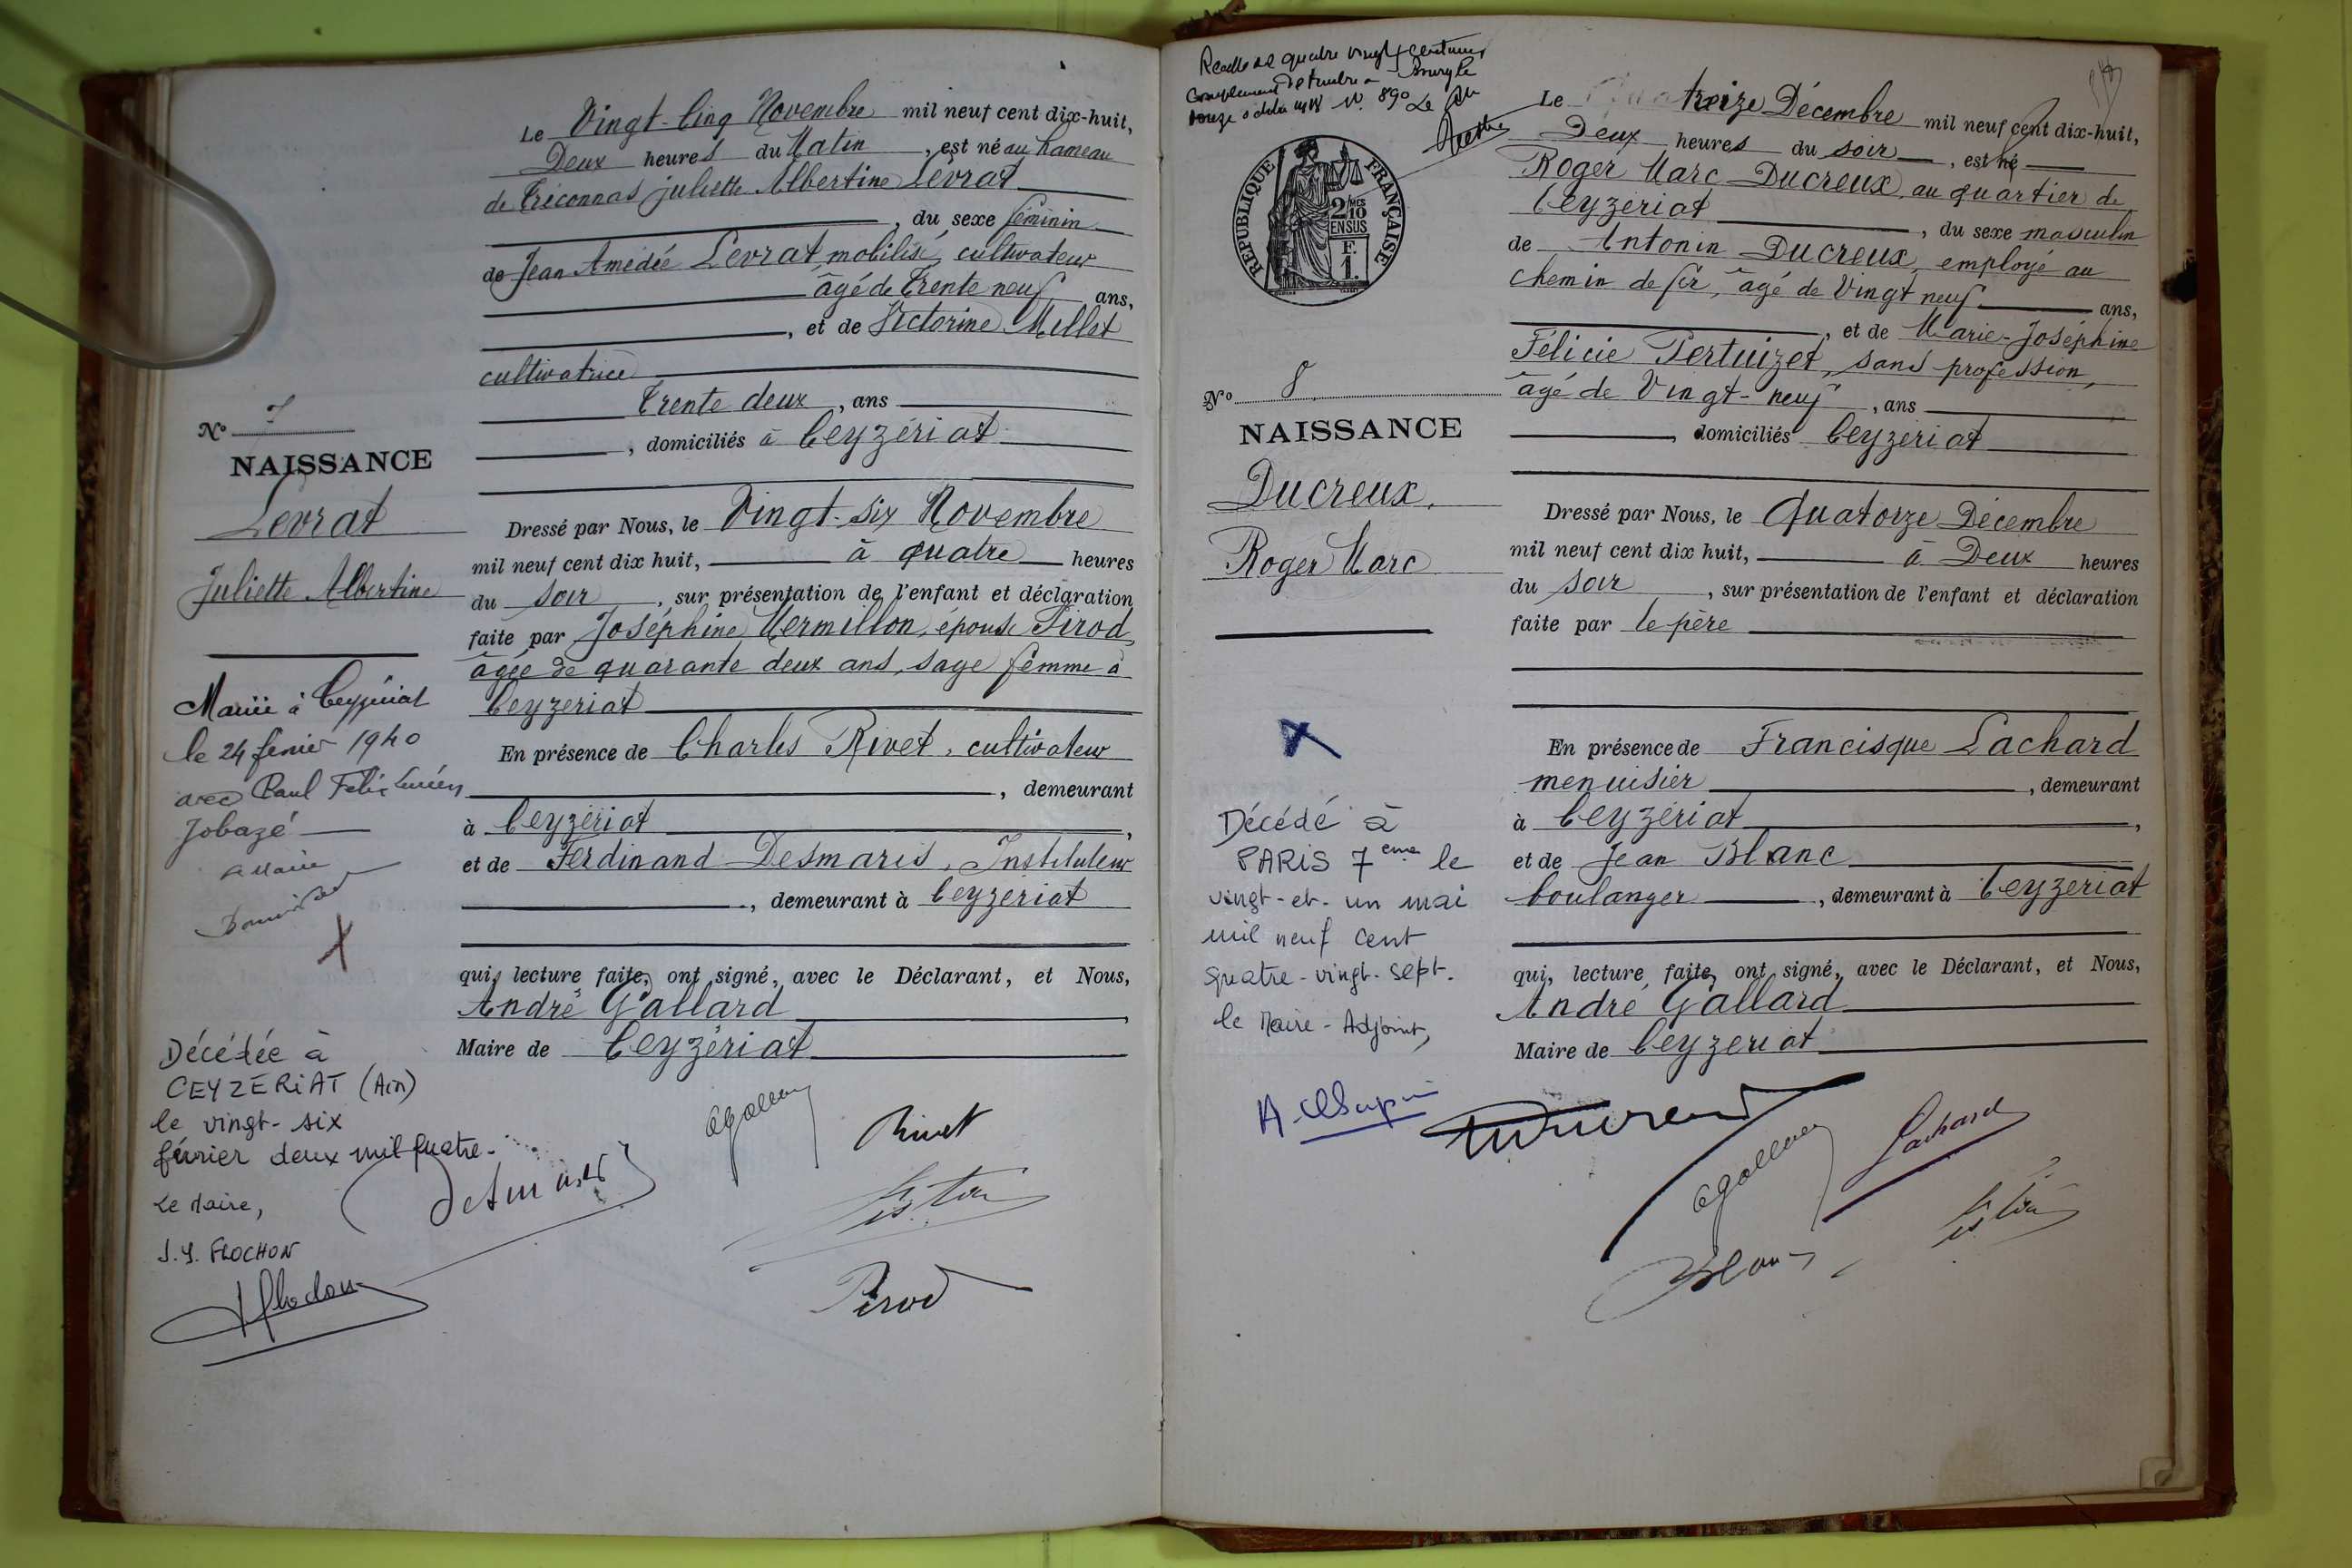 Le Vingt-Cinq Novembre mil neuf cent dix-huit,
Deux heures du Matin, est né au hameau
de Tréconnas Juliette Albertine Levrat
, du sexe féminin
de Jean Amédée Levrat mobilisé, cultivateur
âgé de Trente neuf ans,
, et de Victorine Millet
cultivatrice
Trente deux, ans
, domiciliés à Ceyzériat
N° 7
NAISSANCE
Levrat
Juliette Albertine
Dressé par Nous, le Vingt-six Novembre
mil neuf cent dix huit, à quatre heures
du soir, sur présentation de l'enfant et déclaration
faite par Joséphine Mermillon, épouse Pirod,
âgée de quarante deux ans, sage femme à
Ceyzeriat
En présence de Charles Rivet, cultivateur
, demeurant
à Ceyzériat,
et de Ferdinand Desmaris, Instituteur
, demeurant à Ceyzeriat
qui, lecture faite, ont signé, avec le Déclarant, et Nous,
André Gallard,
Maire de Ceyzériat
Mariée à Ceyzériat
le 24 fevrier 1940
avec Paul Felix Lucien
Jobazé
Le Maire
Décédée à
CEYZÉRIAT (Ain)
le vingt-six
février deux mil quatre.
Le Maire,
J.Y. FLOCHON
Desmaris
Rivet
Pirod
complément de timbre
N° 890
RÉPUBLIQUE FRANÇAISE
2/10 MES
EN SUS
F.
1.
Le treize Décembre mil neuf cent dix-huit,
Deux heures du soir, est né
Roger Marc Ducreux, au quartier de
Ceyzeriat, du sexe masculin
de Antonin Ducreux, employé au
chemin de fer, âgé de Vingt neuf ans,
, et de Marie-Joséphine
Félicie Pertuizet, sans profession,
âgé de Vingt-neuf, ans
, domiciliés Ceyzériat
N° 8
NAISSANCE
Ducreux,
Roger Marc
Dressé par Nous, le Quatorze Décembre
mil neuf cent dix huit, à Deux heures
du soir, sur présentation de l'enfant et déclaration
faite par le père
En présence de Francisque Lachard
menuisier, demeurant
à Ceyzériat,
et de Jean Blanc
boulanger, demeurant à Ceyzeriat
qui, lecture faite, ont signé, avec le Déclarant, et Nous,
André Gallard
Maire de Ceyzeriat
Décédé à
PARIS 7eme le
vingt-et-un mai
mil neuf cent
quatre-vingt-sept.
le Maire-Adjoint,
Ducreux
Lachard
Blanc